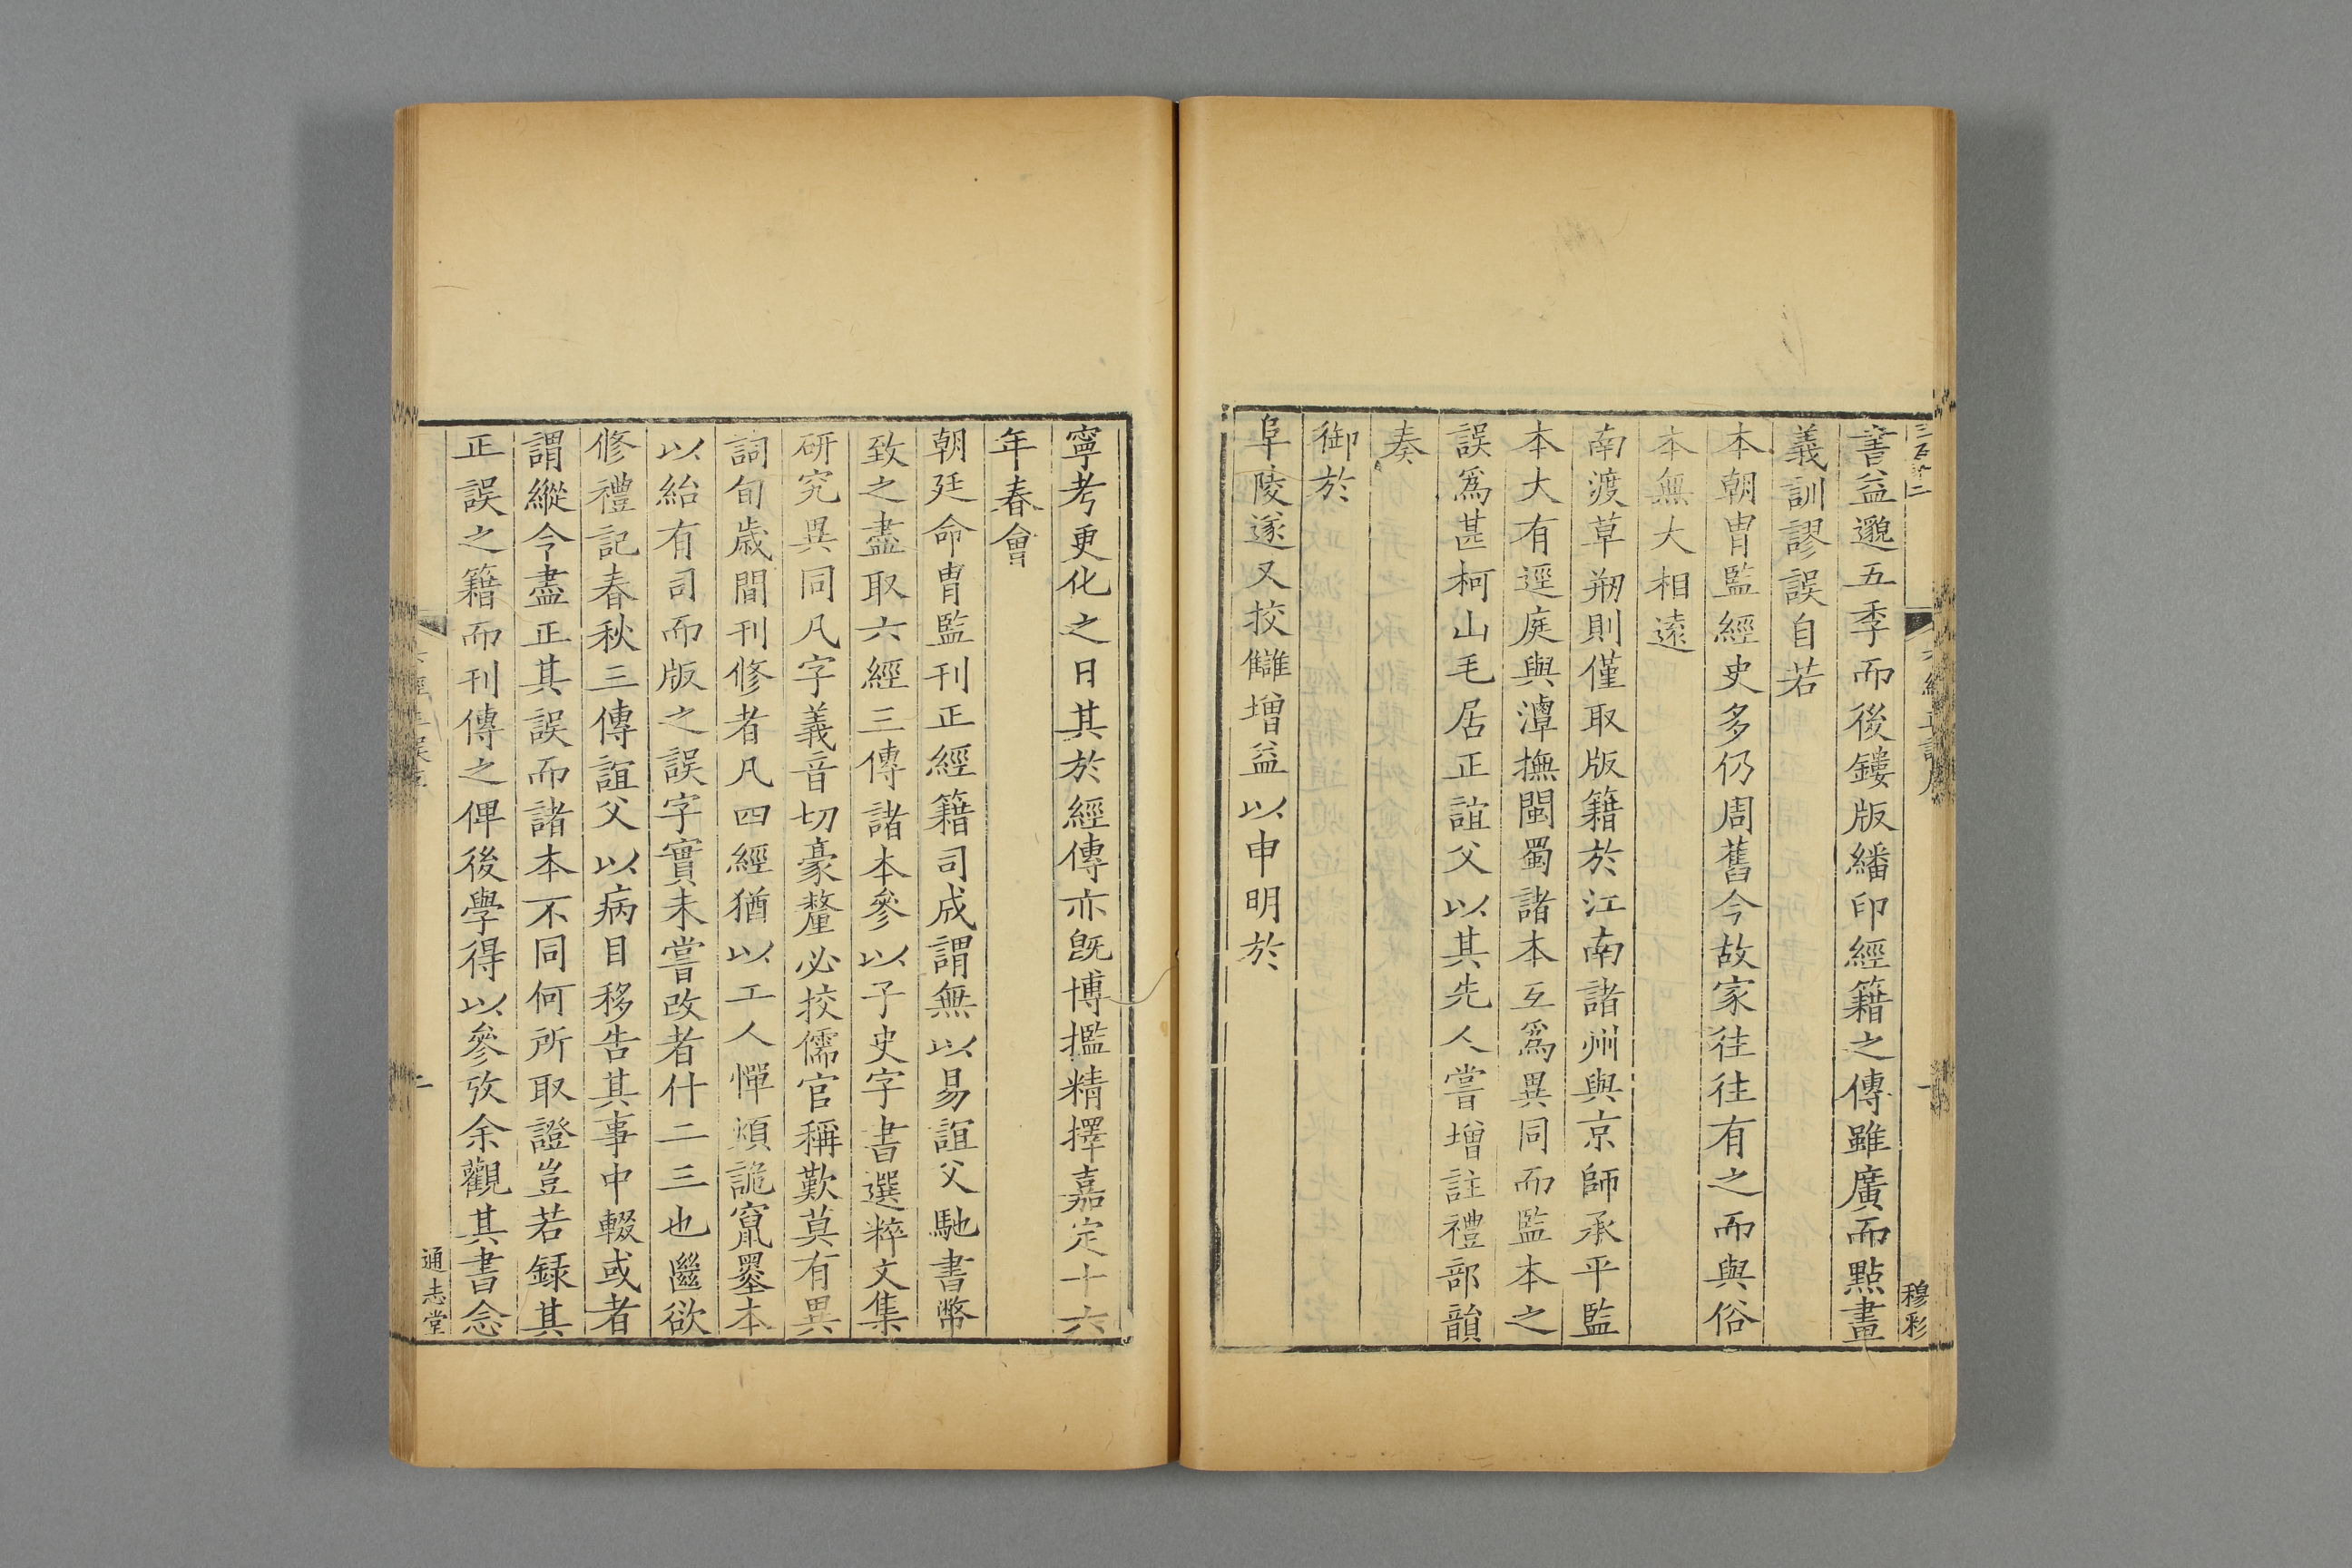 書益邈五季而後鏤版繙印經籍之傳雖廣而點畫
義訓謬誤自若
本朝胄監經史多仍周舊今故家往往有之而與俗
本無大相遠
南渡草刱則僅取版籍於江南諸州與京師承平監
本大有逕庭與潭撫閩蜀諸本互爲異同而監本之
誤爲甚柯山毛居正誼父以其先人嘗增註禮部韻
奏
御於
阜陵遂又挍讎增益以申明於
寧考更化之日其於經傳亦旣博攬精擇嘉定十六
年春會
朝廷命胄監刊正經籍司成謂無以易誼父馳書幣
致之盡取六經三傳諸本參以子史字書選粹文集
研究異同凡字義音切豪釐必挍儒官稱歎莫有異
詞旬歲間刊修者凡四經猶以工人憚煩詭竄墨本
以紿有司而版之誤字實未嘗改者什二三也繼欲
修禮記春秋三傳誼父以病目移告其事中輟或者
謂縱今盡正其誤而諸本不同何所取證豈若録其
正誤之籍而刊傳之俾後學得以參攷余觀其書念
通志堂
穆彩